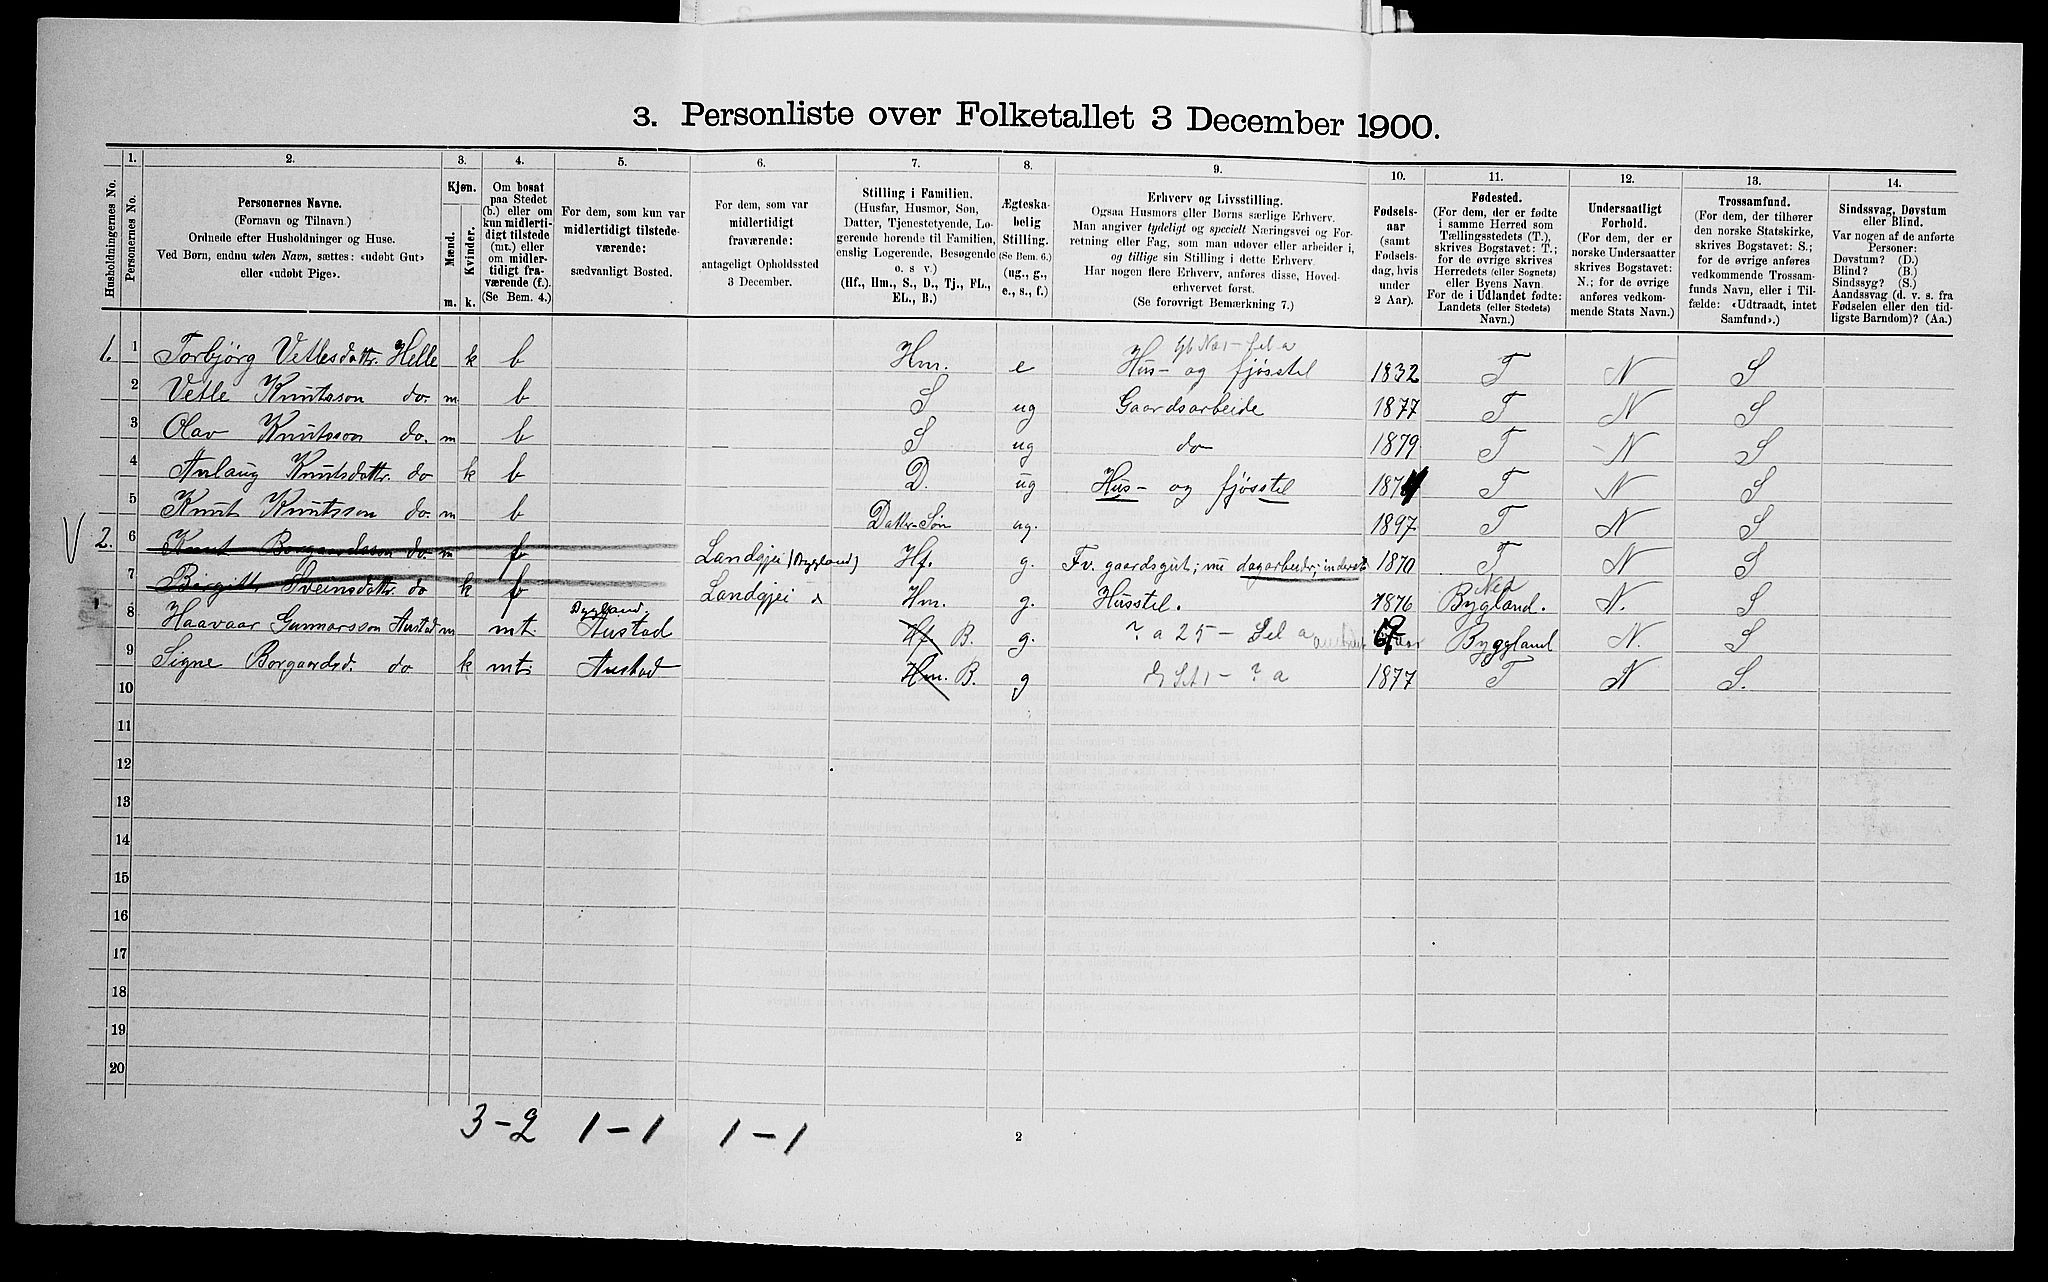 3. Personliste over Folketallet 3 December 1900.
1. 2. 3. 4. 5. 6. 7. 8. 9. 10. 11. 12. 13. 14.
Husholdningernes No.
Personernes No.
Personernes Navne.
(Fornavn og Tilnavn.)
Ordnede efter Husholdninger og Huse.
Ved Børn, endnu uden Navn, sættes: «udøbt Gut»
eller «udøbt Pige».
Kjøn.
Mænd.
Kvinder.
m. k.
Om bosat
paa Stedet
(b.) eller om
kun midlerti-
digt tilstede
(mt.) eller
om midler-
tidigt fra-
værende (f.)
(Se Bem. 4.)
For dem, som kun var
midlertidigt tilstede-
værende:
sædvanligt Bosted.
For dem, som var
midlertidigt
fraværende:
antageligt Opholdssted
3 December.
Stilling i Familien.
(Husfar, Husmor, Søn,
Datter, Tjenestetyende, Lo-
gerende hørende til Familien,
enslig Logerende, Besøgende
o. s v.)
(Hf., Hm., S., D., Tj., FL.,
EL., B.)
Ægteska-
belig
Stilling.
(Se Bem. 6.)
(ug., g.,
e., s., f.)
Erhverv og Livsstilling.
Ogsaa Husmors eller Børns særlige Erhverv.
Man angiver tydeligt og specielt Næringsvei og For-
retning eller Fag, som man udøver eller arbeider i,
og tillige sin Stilling i dette Erhverv.
Har nogen flere Erhverv, anføres disse, Hoved-
erhvervet først.
(Se forøvrigt Bemærkning 7.)
Fødsels-
aar
(samt
Fødsels-
dag, hvis
under
2 Aar).
Fødested.
(For dem, der er fødte
i samme Herred som
Tællingsstedets (T.),
skrives Bogstavet: T.;
for de øvrige skrives
Herredets (eller Sognets)
eller Byens Navn.
For de i Udlandet fødte:
Landets (eller Stedets)
Navn.)
Undersaatligt
Forhold.
(For dem, der er
norske Undersaatter
skrives Bogstavet:
N.; for de øvrige
anføres vedkom-
mende Stats Navn.)
Trossamfund.
(For dem, der tilhører
den norske Statskirke,
skrives Bogstavet: S.;
for de øvrige anføres
vedkommende Trossam-
funds Navn, eller i Til-
fælde: «Udtraadt, intet
Samfund».)
Sindssvag, Døvstum
eller Blind.
Var nogen af de anførte
Personer:
Døvstum? (D.)
Blind? (B.)
Sindssyg? (S.)
Aandssvag (d. v. s. fra
Fødselen eller den tid-
ligste Barndom)? (Aa.)
1. 1 Torbjørg Vetlesdattr. Helle k b Hm. e Hus- og fjøsstel 1832 T N S
2 Vetle Knutsson do. m b S ug Gaardsarbeide 1877 T N S
3 Olav Knutsson do. m b S ug do 1879 T N S
4 Anlaug Knutsdattr. do k b D. ug Hus- og fjøsstel 1874 T N S
5 Knut Knutsson do. m b Datter-Søn ug. 1897 T N S
V 2. 6 Knut Borgaardsson do m f Landsjei (Bygland) Hf. g. Fv. gaardsgut; nu dagarbeidr; inderst 1870 T N S
7 Birgitt Sveinsdattr. do k f Landsjei Hm. g. Husstel. 1876 Bygland. N. S
8 Haavaar Gunnarsson Austad m mt. Bygland. Austad Hf. B. g. Byggland N. S
9 Signe Borgaardsd. do k mt. Austad Hm. B. g 1877 T N S.
10
11
12
13
14
15
16
17
18
19
20
3-2 1-1 1-1
2